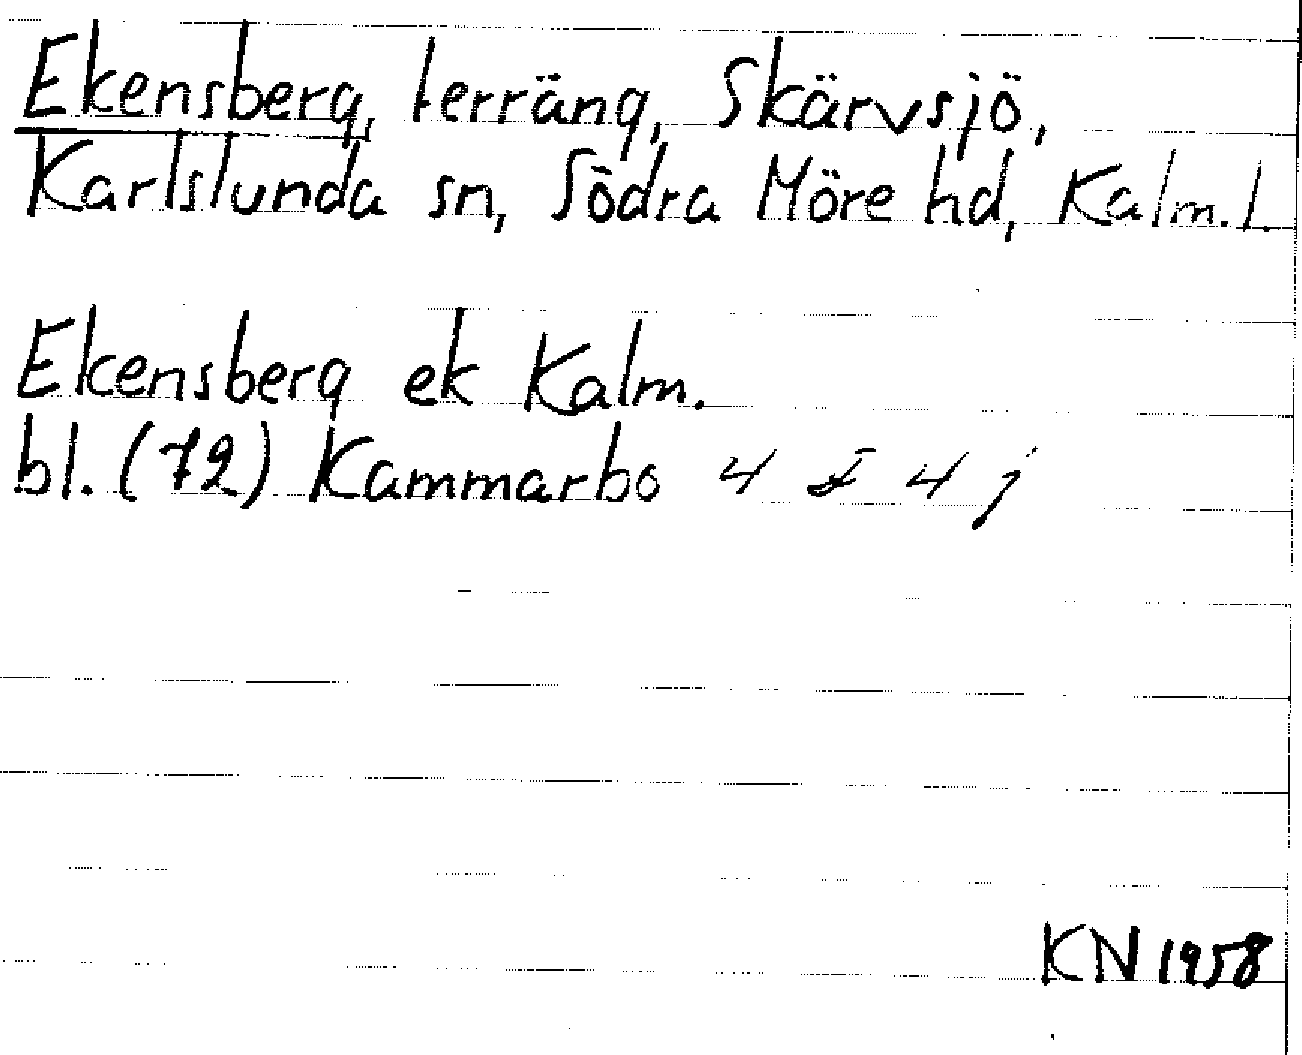 Ekensberg, terräng, Skärvsjö,
Karlslunda sn, Södra Möre hd, Kalm. l.
Ekensberg ek Kalm.
bl. (72) Kammarbo 4 F 4 j
KN 1958